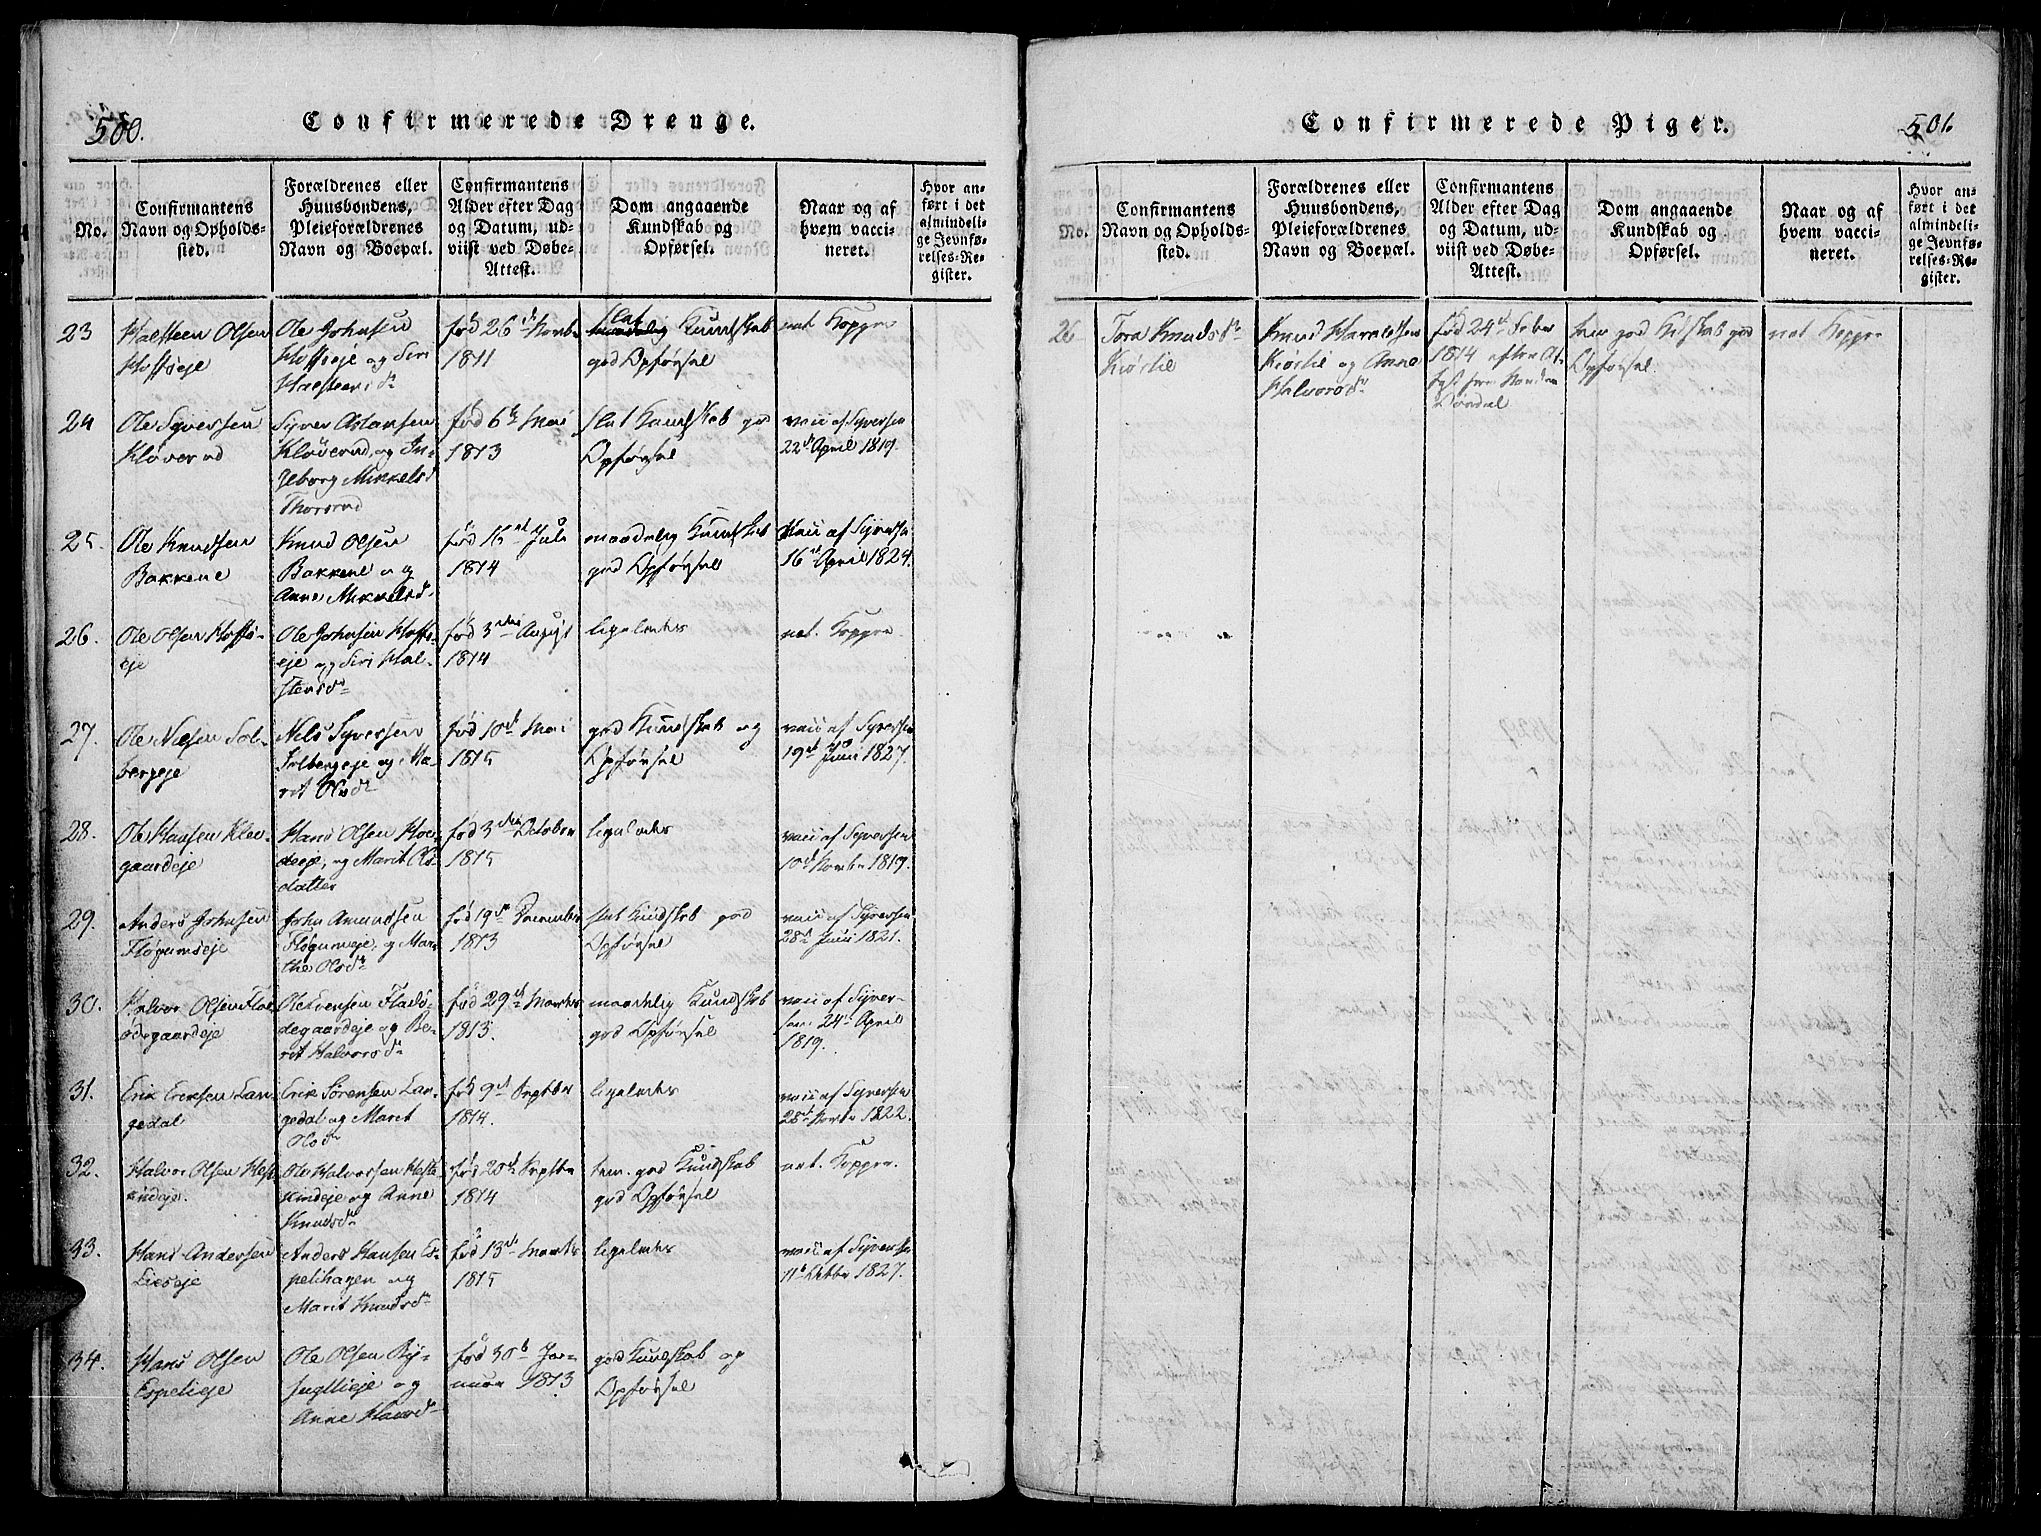 500.
Confirmerede Drenge.
No.
Confirmantens
Navn og Opholds-
sted.
Forældrenes eller
Huusbondens,
Pleieforældrenes
Navn og Boepæl.
Confirmantens
Alder efter Dag
og Datum, ud-
viist ved Døbe-
Attest.
Dom angaaende
Kundskab og
Opførsel.
Naar og af
hvem vacci-
neret.
Hvor an-
ført i det
almindeli-
ge Jevnfø-
relses-Re-
gister.
23
Halsteen Olsen
Hoffseje
Ole Johnsen
Hoffseje og Siri
Halsteensd
født 26 Novbr
1811
slat Kundskab
god Opførsel
nat Kopper
24
Ole Syversen
Kløverud
Syver Asland­sen
Kløverud, og In-
geborg Mikkelsd
Thorsrud
født 6te Mai
1813
slat Kundskab god
Opførsel
vacc af Syversen
22d April 1819.
25.
Ole Knudsen
Bakkene
Knud Olsen
Bakkene og
Anne Mikkelsd.
født 16 Juli
1814
maadelig Kundskab
god Opførsel
vacc af Syversen
16 April 1824.
26.
Ole Olsen Hoffs-
eje
Ole Johnsen Hoffs-
eje og Siri Hal-
stensd
født 3 August
1814
ligeledes
nat. Kopper
27.
Ole Nielsen Sol-
bergeje
Nils Syversen
Solbergeje og Ma-
rit Olsd
født 10 Mai
1815
god Kundskab og
Opførsel
vacc af Syversen
19 Juni 1827.
28.
Ole Hansen Klev-
gaardeje
Hans Olsen
og Marit Ols-
datter
født 3 October
1815
ligeledes
vacc af Syversen
10 Novbr 1819.
29.
Anders Johnsen
Fløgumseje
John Amundsen
Fløgumeje, og Mar-
the Olsd
født 19 December
1813
slat Kundskab god
Opførsel
vacc af Syversen
28 Juni 1821.
30.
Halvor Olsen Flad-
ødegaardeje
Ole Evensen Fladø-
degaardeje og Be-
rit Halvorsd
født 29 Marts
1813.
maadelig Kundskab
god Opførsel
vacc af Syver-
sen 24 April
1819.
31.
Erik Eriksen Lan-
gedal
Erik Sørensen Lan-
gedal og Marit
Olsd
født 9 Septbr
1814.
ligeledes
vacc af Syversen
28 Novbr 1822.
32.
Halvor Olsen Hest-
kindeje.
Ole Halvorsen Hest-
kindeje og Anne
Knudsd
født 20 Septbr
1814
tem. god Kundskab
god Opførsel
nat. Kopper.
33.
Hans Andersen
Lieseje
Anders Hansen Es-
pelihagen og
Marit Knudsd
født 13 Marts
1815
ligeledes
vacc af Syversen
11 Octbr 1827.
34.
Hans Olsen
Espelieje
Ole Olsen By-
og
Anne Hansd
født 30 Jan-
uar 1813
god Kundskab og
Opførsel
Confirmerede Piger.
501.
No.
Confirmantens
Navn og Opholds-
sted.
Forældrenes eller
Huusbondens,
Pleieforældrenes
Navn og Boepæl.
Confirmantens
Alder efter Dag
og Datum, ud-
viist ved Døbe-
Attest.
Dom angaaende
Kundskab og
Opførsel.
Naar og af
hvem vacci-
neret.
Hvor an-
ført i det
almindeli-
ge Jevnfø-
relses-Re-
gister.
26
Tora Knudsd
Kiørlie
Knud Haraldsen
Kiørlie og Anne
Halvorsd
født 24
1814 efter At-
test fra Nordre
tem god Kundskab god
Opførsel.
nat Kopper